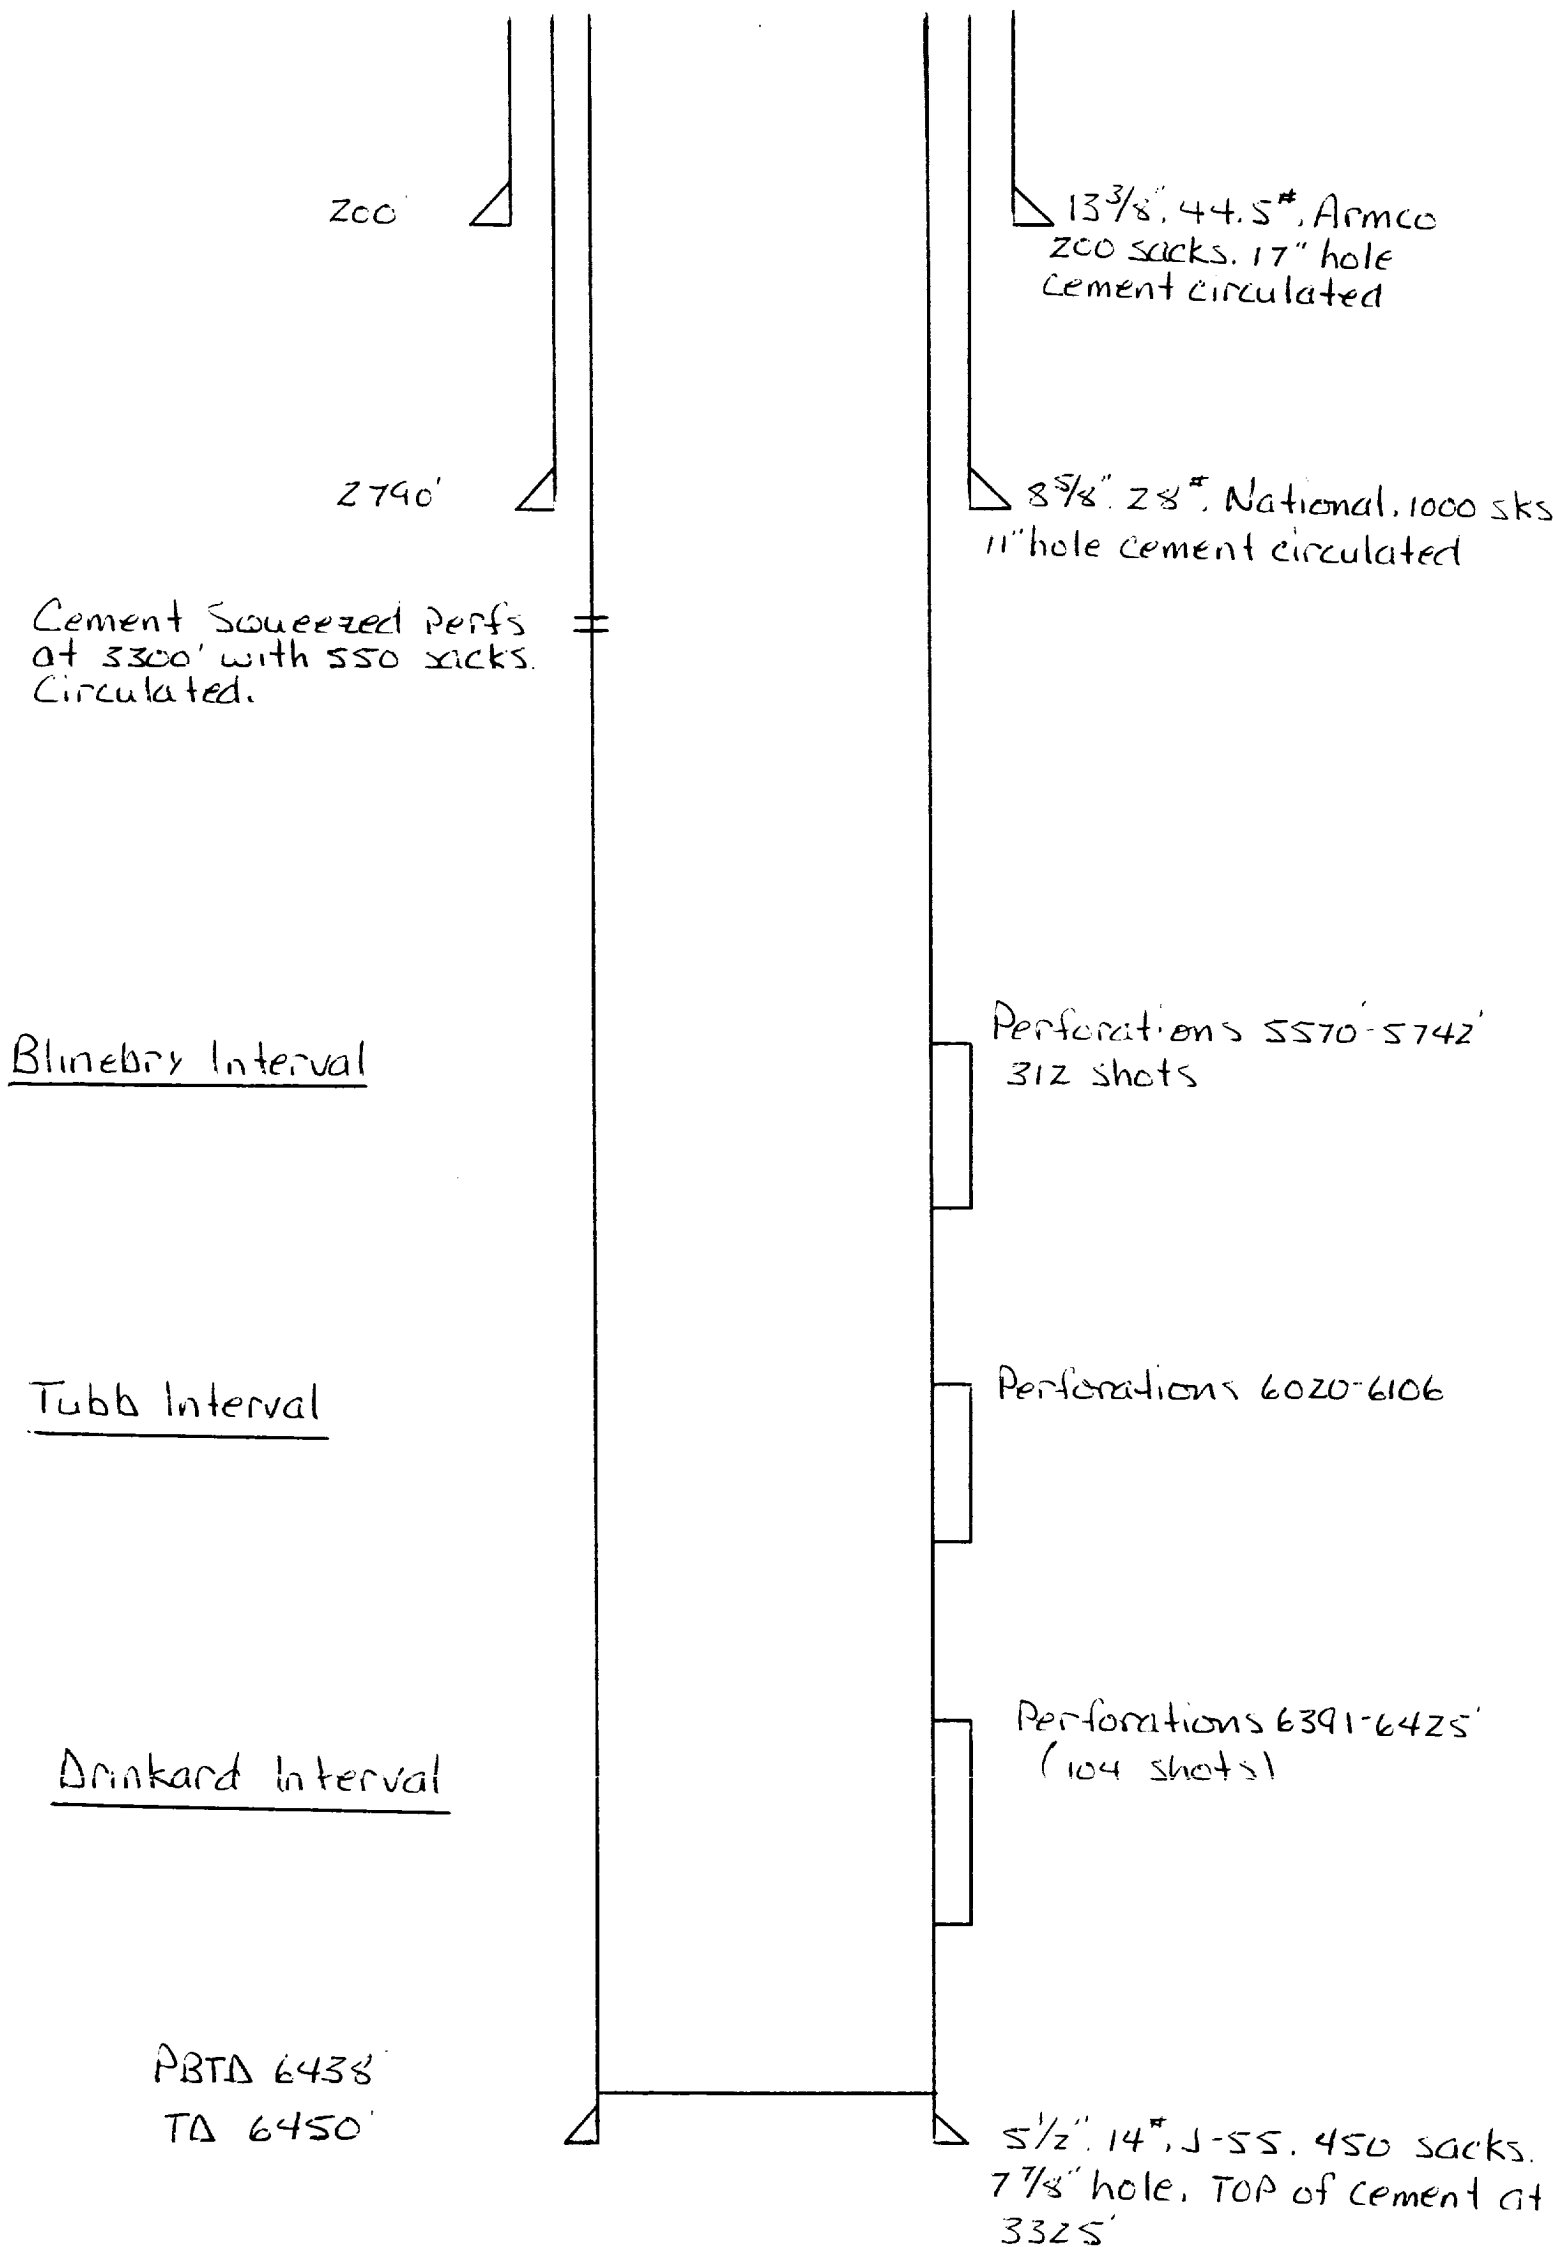 200'
13 3/8", 44.5#, Armco
200 sacks. 17" hole
Cement circulated
2790'
8 5/8", 28#, National, 1000 sks
11" hole cement circulated
Cement Squeezed Perfs
at 3300' with 550 sacks.
Circulated.
Blinebry Interval
Perforations 5570'-5742'
312 shots
Tubb Interval
Perforations 6020-6106
Drinkard Interval
Perforations 6391-6425'
(104 shots)
PBTD 6438'
TD 6450'
5 1/2", 14#, J-55. 450 sacks.
7 7/8" hole. TOP of cement at
3325'